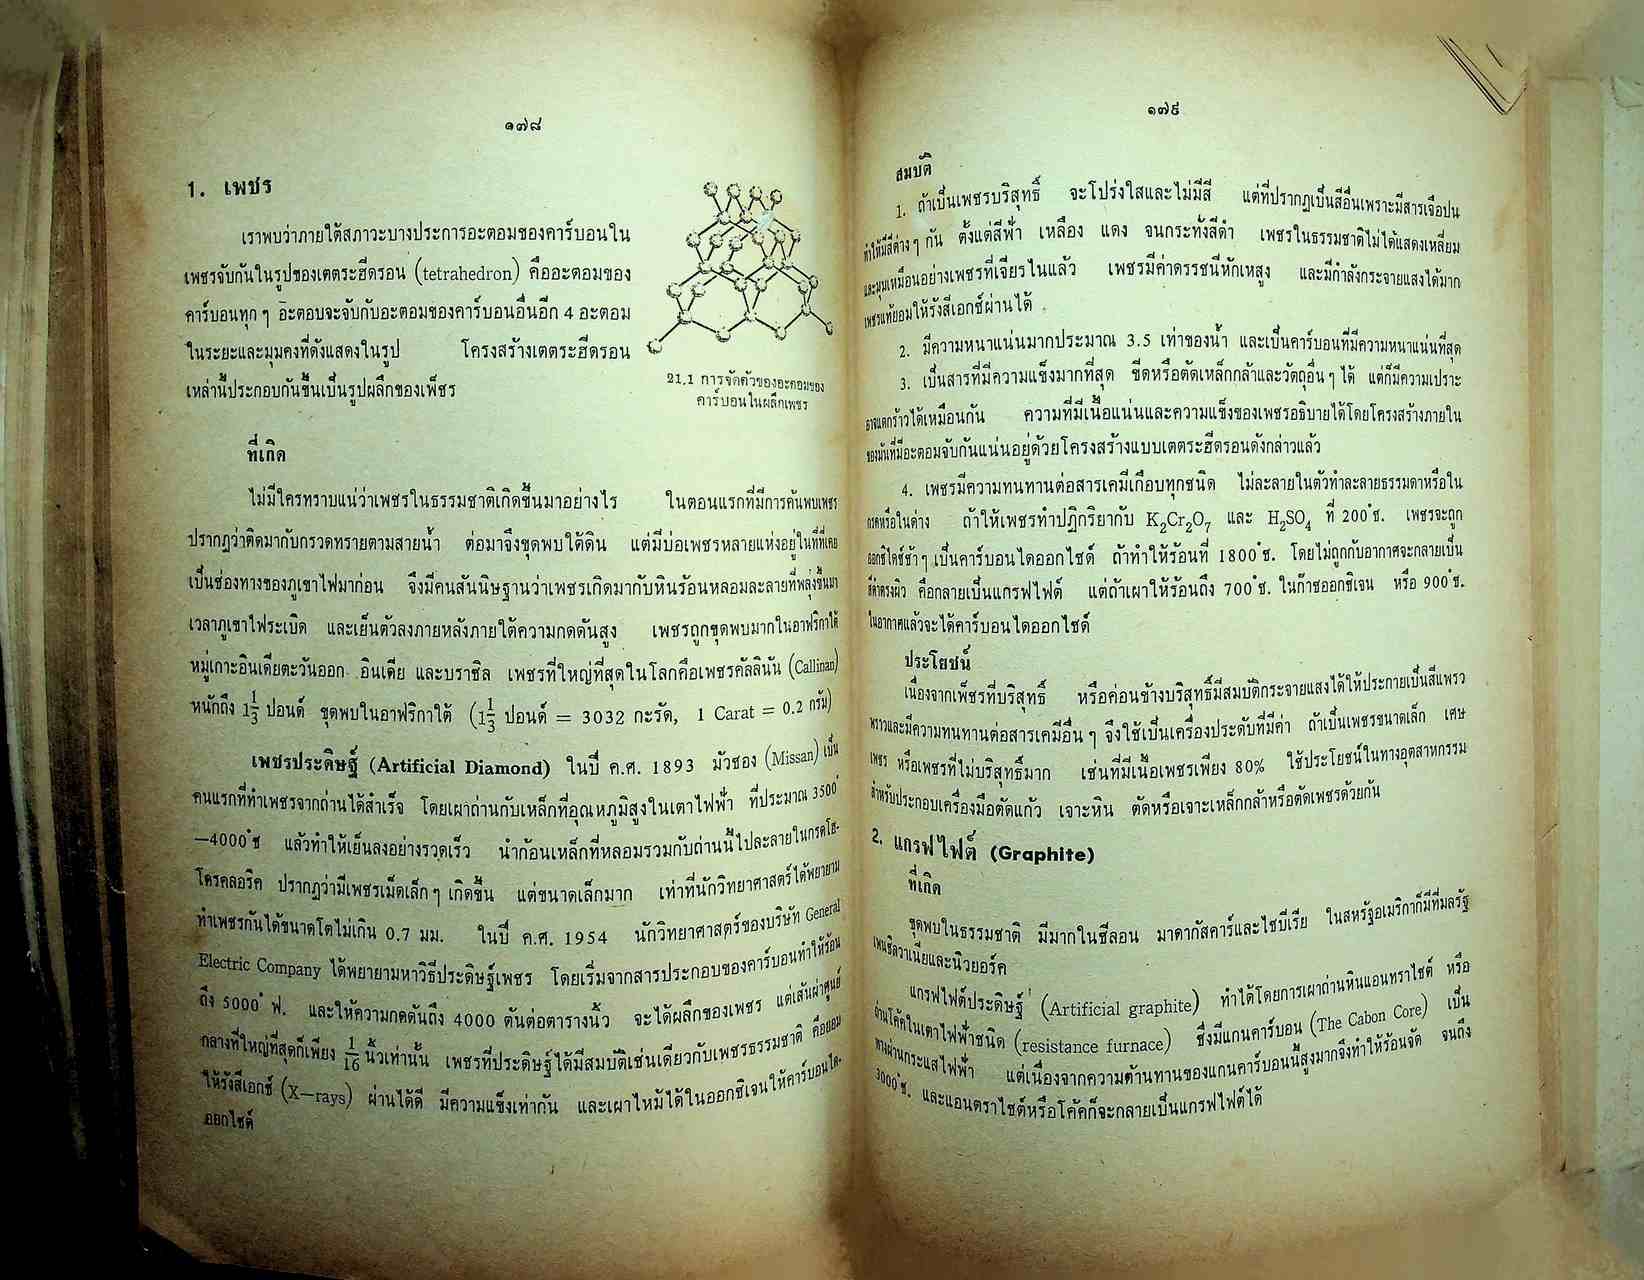 ๑๗๘
1. เพชร
เราพบว่าภายใต้สภาวะบางประการอะตอมของคาร์บอนใน
เพชรจับกันในรูปของเตตระฮีดรอน (tetrahedron) คืออะตอมของ
คาร์บอนทุก ๆ อะตอบจะจับกับอะตอมของคาร์บอนอื่นอีก 4 อะตอม
ในระยะและมุมคงที่ดังแสดงในรูป โครงสร้างเตตระฮีดรอน
เหล่านี้ประกอบกันขึ้นเป็นรูปผลึกของเพ็ชร
21.1 การจัดตัวของอะตอมของ
คาร์บอนในผลึกเพชร
ที่เกิด
ไม่มีใครทราบแน่ว่าเพชรในธรรมชาติเกิดขึ้นมาอย่างไร ในตอนแรกที่มีการค้นพบเพชร
ปรากฏว่าติดมากับกรวดทรายตามสายน้ำ ต่อมาจึงขุดพบใต้ดิน แต่มีบ่อเพชรหลายแห่งอยู่ในที่ที่เคย
เป็นช่องทางของภูเขาไฟมาก่อน จึงมีคนสันนิษฐานว่าเพชรเกิดมากับหินร้อนหลอมละลายที่พลุ่งขึ้นมา
เวลาภูเขาไฟระเบิด และเย็นตัวลงภายหลังภายใต้ความกดดันสูง เพชรถูกขุดพบมากในอาฟริกาใต้
หมู่เกาะอินเดียตะวันออก อินเดีย และบราซิล เพชรที่ใหญ่ที่สุดในโลกคือเพชรคัลลินัน (Callinan)
หนักถึง 1⅓ ปอนด์ ขุดพบในอาฟริกาใต้ (1⅓ ปอนด์ = 3032 กะรัต, 1 Carat = 0.2 กรัม)
เพชรประดิษฐ์ (Artificial Diamond) ในปี ค.ศ. 1893 มัวซอง (Missan) เป็น
คนแรกที่ทำเพชรจากถ่านได้สำเร็จ โดยเผาถ่านกับเหล็กที่อุณหภูมิสูงในเตาไฟฟ้า ที่ประมาณ 3500°
—4000°ซ แล้วทำให้เย็นลงอย่างรวดเร็ว นำก้อนเหล็กที่หลอมรวมกับถ่านนี้ไปละลายในกรดไฮ-
โดรคลอริค ปรากฏว่ามีเพชรเม็ดเล็ก ๆ เกิดขึ้น แต่ขนาดเล็กมาก เท่าที่นักวิทยาศาสตร์ได้พยายาม
ทำเพชรกันได้ขนาดโตไม่เกิน 0.7 มม. ในปี ค.ศ. 1954 นักวิทยาศาสตร์ของบริษัท General
Electric Company ได้พยายามหาวิธีประดิษฐ์เพชร โดยเริ่มจากสารประกอบของคาร์บอนทำให้ร้อน
ถึง 5000° ฟ. และให้ความกดดันถึง 4000 ตันต่อตารางนิ้ว จะได้ผลึกของเพชร แต่เส้นผ่าศูนย์
กลางที่ใหญ่ที่สุดก็เพียง 1/16 นิ้วเท่านั้น เพชรที่ประดิษฐ์ได้มีสมบัติเช่นเดียวกับเพชรธรรมชาติ คือยอม
ให้รังสีเอกซ์ (X—rays) ผ่านได้ดี มีความแข็งเท่ากัน และเผาไหม้ได้ในออกซิเจนให้คาร์บอนได-
ออกไซด์
๑๗๙
สมบัติ
1. ถ้าเป็นเพชรบริสุทธิ์ จะโปร่งใสและไม่มีสี แต่ที่ปรากฏเป็นสีอื่นเพราะมีสารเจือปน
ทำให้มีสีต่าง ๆ กัน ตั้งแต่สีฟ้า เหลือง แดง จนกระทั่งสีดำ เพชรในธรรมชาติไม่ได้แสดงเหลี่ยม
และมุมเหมือนอย่างเพชรที่เจียรไนแล้ว เพชรมีค่าดรรชนีหักเหสูง และมีกำลังกระจายแสงได้มาก
เพชรแท้ยอมให้รังสีเอกซ์ผ่านได้
2. มีความหนาแน่นมากประมาณ 3.5 เท่าของน้ำ และเป็นคาร์บอนที่มีความหนาแน่นที่สุด
3. เป็นสารที่มีความแข็งมากที่สุด ขีดหรือตัดเหล็กกล้าและวัตถุอื่น ๆ ได้ แต่ก็มีความเปราะ
อาจแตกร้าวได้เหมือนกัน ความที่มีเนื้อแน่นและความแข็งของเพชรอธิบายได้โดยโครงสร้างภายใน
ของมันที่มีอะตอมจับกันแน่นอยู่ด้วยโครงสร้างแบบเตตระฮีดรอนดังกล่าวแล้ว
4. เพชรมีความทนทานต่อสารเคมีเกือบทุกชนิด ไม่ละลายในตัวทำละลายธรรมดาหรือใน
กรดหรือในด่าง ถ้าให้เพชรทำปฏิกริยากับ K₂Cr₂O₇ และ H₂SO₄ ที่ 200°ซ. เพชรจะถูก
ออกซิไดซ์ช้า ๆ เป็นคาร์บอนไดออกไซด์ ถ้าทำให้ร้อนที่ 1800°ซ. โดยไม่ถูกกับอากาศจะกลายเป็น
สีดำตรงผิว คือกลายเป็นแกรฟไฟต์ แต่ถ้าเผาให้ร้อนถึง 700°ซ. ในก๊าซออกซิเจน หรือ 900°ซ.
ในอากาศแล้วจะได้คาร์บอนไดออกไซด์
ประโยชน์
เนื่องจากเพ็ชรที่บริสุทธิ์ หรือค่อนข้างบริสุทธิ์มีสมบัติกระจายแสงได้ให้ประกายเป็นสีแพรว
พราวและมีความทนทานต่อสารเคมีอื่น ๆ จึงใช้เป็นเครื่องประดับที่มีค่า ถ้าเป็นเพชรขนาดเล็ก เศษ
เพชร หรือเพชรที่ไม่บริสุทธิ์มาก เช่นที่มีเนื้อเพชรเพียง 80% ใช้ประโยชน์ในทางอุตสาหกรรม
สำหรับประกอบเครื่องมือตัดแก้ว เจาะหิน ตัดหรือเจาะเหล็กกล้าหรือตัดเพชรด้วยกัน
2. แกรฟไฟต์ (Graphite)
ที่เกิด
ขุดพบในธรรมชาติ มีมากในซีลอน มาดากัสคาร์และไซบีเรีย ในสหรัฐอเมริกาก็มีที่มลรัฐ
เพนซิลวาเนียและนิวยอร์ค
แกรฟไฟต์ประดิษฐ์ (Artificial graphite) ทำได้โดยการเผาถ่านหินแอนทราไซต์ หรือ
ถ่านโค้คในเตาไฟฟ้าชนิด (resistance furnace) ซึ่งมีแกนคาร์บอน (The Cabon Core) เป็น
ทางผ่านกระแสไฟฟ้า แต่เนื่องจากความต้านทานของแกนคาร์บอนนี้สูงมากจึงทำให้ร้อนจัด จนถึง
3000°ซ. และแอนตราไซต์หรือโค้คก็จะกลายเป็นแกรฟไฟต์ได้